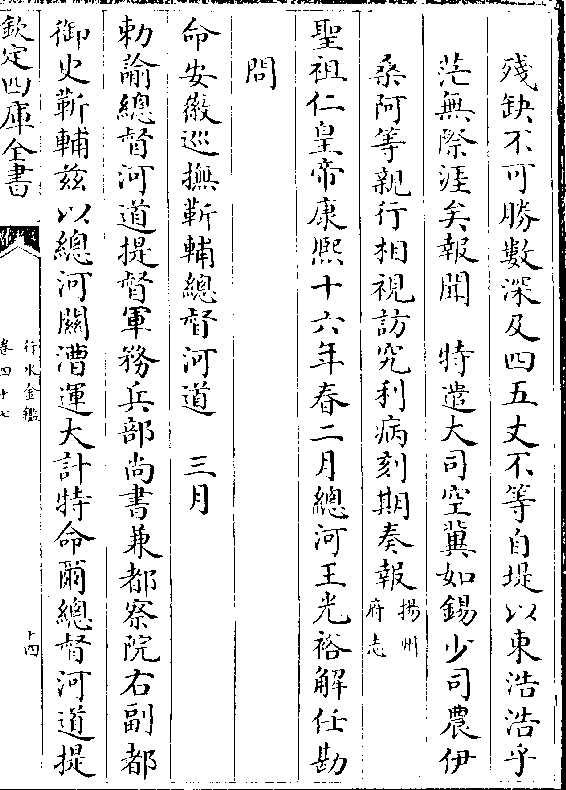 殘缺不可勝數深及四五丈不等自堤以東浩浩乎
茫無際涯矣報聞　特遣大司空冀如錫少司農伊
桑阿等親行相視訪究利病刻期奏報揚州府志
聖祖仁皇帝康熙十六年春二月總河王光裕解任勘
問
命安徽巡撫靳輔總督河道　三月
勅諭總督河道提督軍務兵部尚書兼都察院右副都
御史靳輔茲以總河關漕運大計特命爾總督河道提
欽定四庫全書
行水金鑑
卷四十七
十四